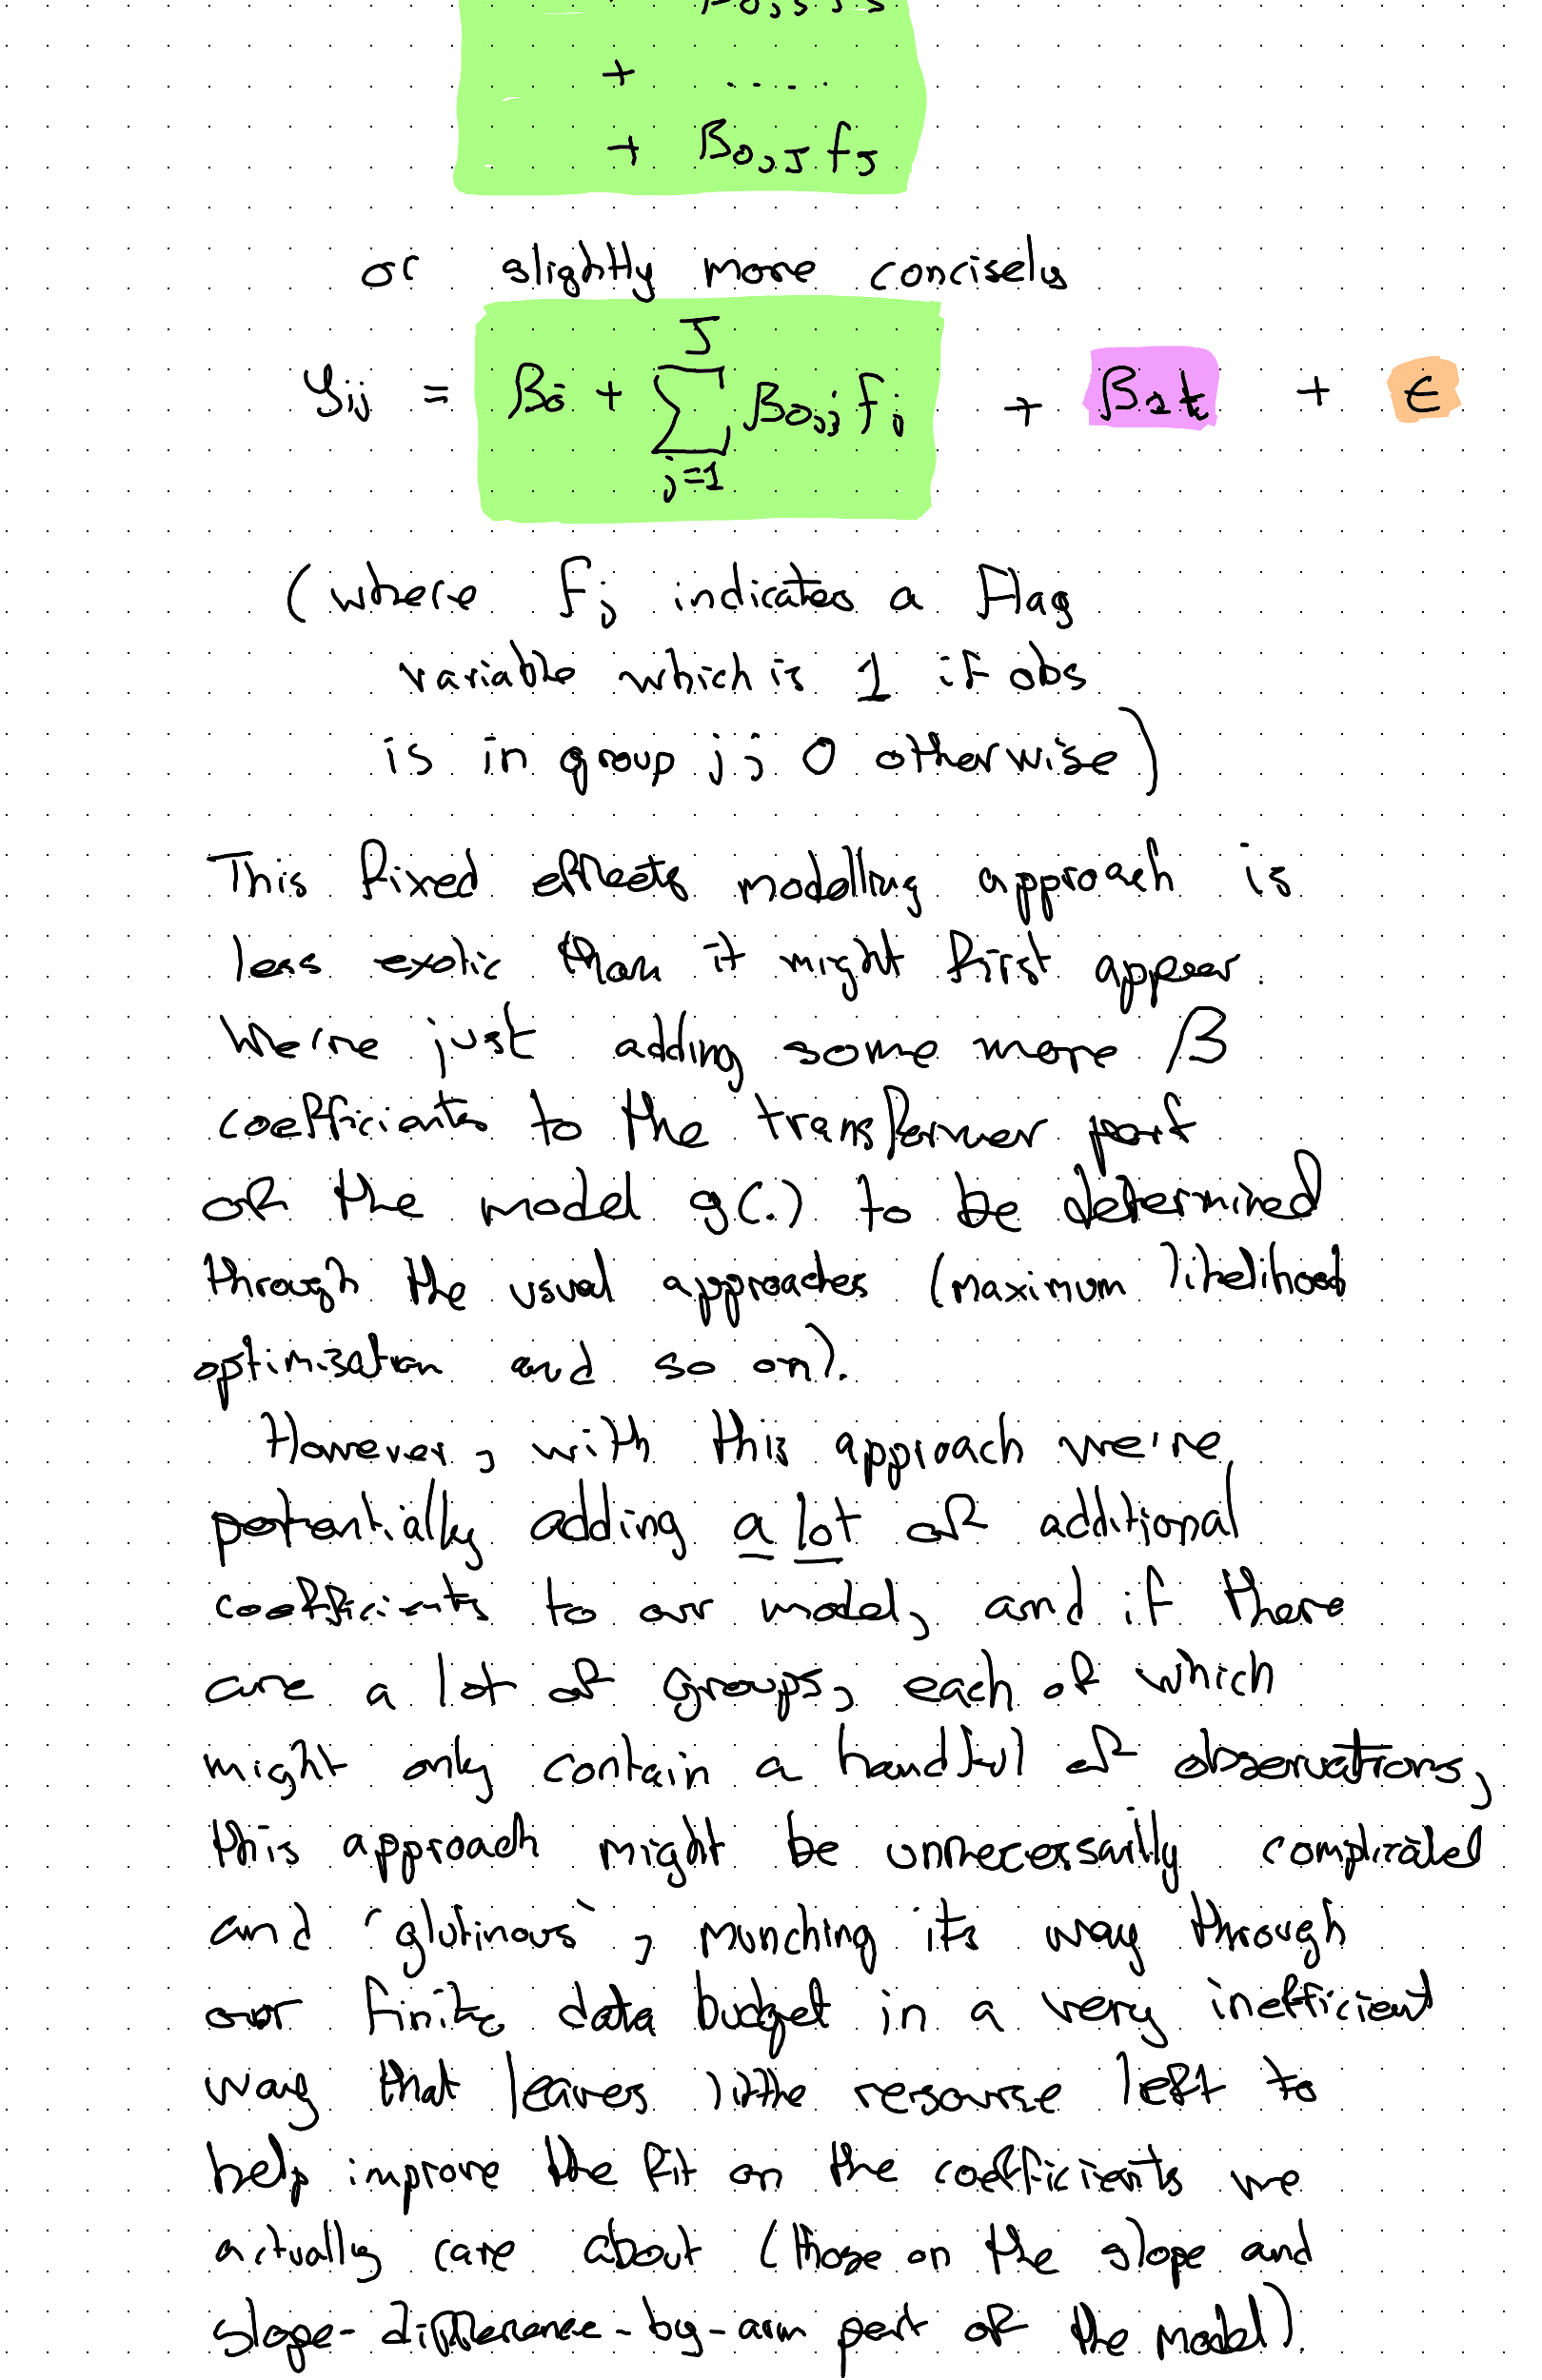 + ....
+ β0,J fJ
or slightly more concisely
yij = β0 + Σ J j=1 β0,j fj + β1t + ϵ
(where fj indicates a flag
variable which is 1 if obs
is in group j; 0 otherwise)
This fixed effects modelling approach is
less exotic than it might first appear.
We're just adding some more β
coefficients to the transformer part
of the model g(.) to be determined
through the usual approaches (maximum likelihood
optimisation and so on).
However, with this approach we're
potentially adding a lot of additional
coefficients to our model, and if there
are a lot of groups, each of which
might only contain a handful of observations,
this approach might be unnecessarily complicated
and 'glutinous', munching its way through
our finite data budget in a very inefficient
way that leaves little resourse left to
help improve the fit on the coefficients we
actually care about (those on the slope and
slope-difference-by-arm part of the model).